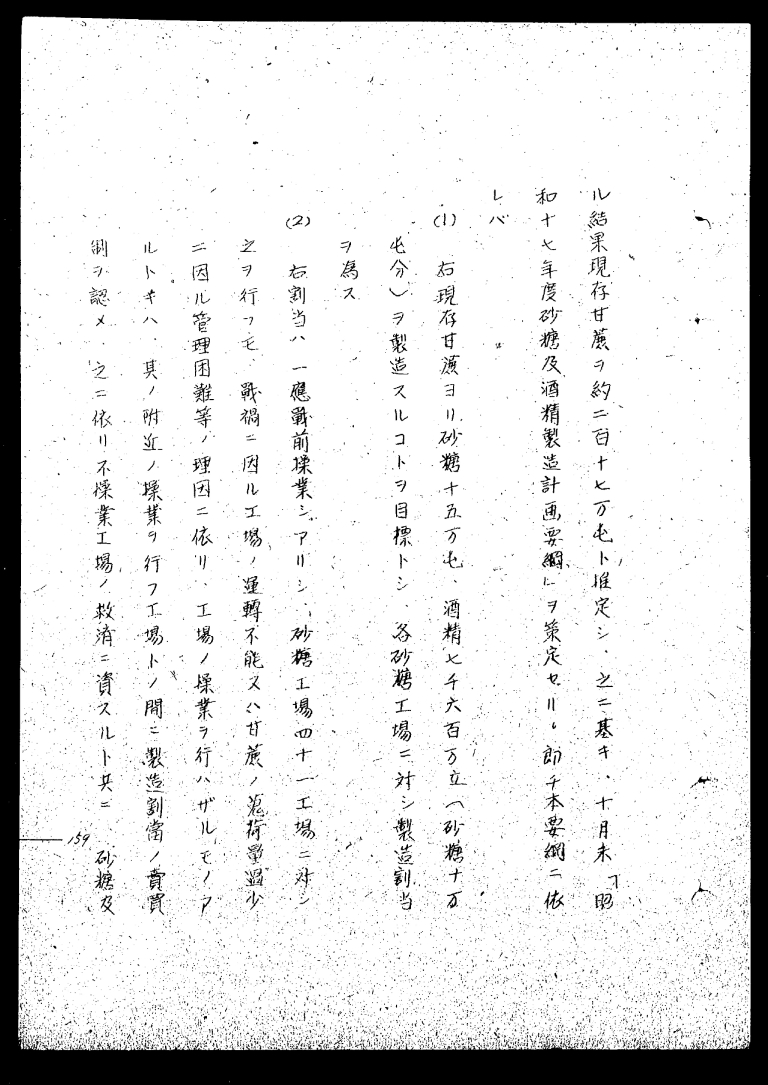 ル結果現存甘蔗ヲ約二百十七万屯ト推定シ、之ニ基キ、十月末「昭
和十七年度砂糖及酒精製造計画要綱」ヲ策定セリ。即チ本要綱ニ依
レバ
(1) 右現存甘蔗ヨリ砂糖十五万屯、酒精七千六百万立(砂糖十万
屯分)ヲ製造スルコトヲ目標トシ、各砂糖工場ニ対シ製造割当
ヲ為ス
(2) 右割当ハ一應戰前操業シアリシ、砂糖工場四十一工場ニ対シ
之ヲ行フモ、戰禍ニ因ル工場ノ運轉不能又ハ甘蔗ノ蒐荷量過少
ニ因ル管理困難等ノ理因ニ依リ、工場ノ操業ヲ行ハザルモノア
ルトキハ、其ノ附近ノ操業ヲ行フ工場トノ間ニ製造割當ノ賣買
制ヲ認メ、之ニ依リ不操業工場ノ救済ニ資スルト共ニ 砂糖及
159